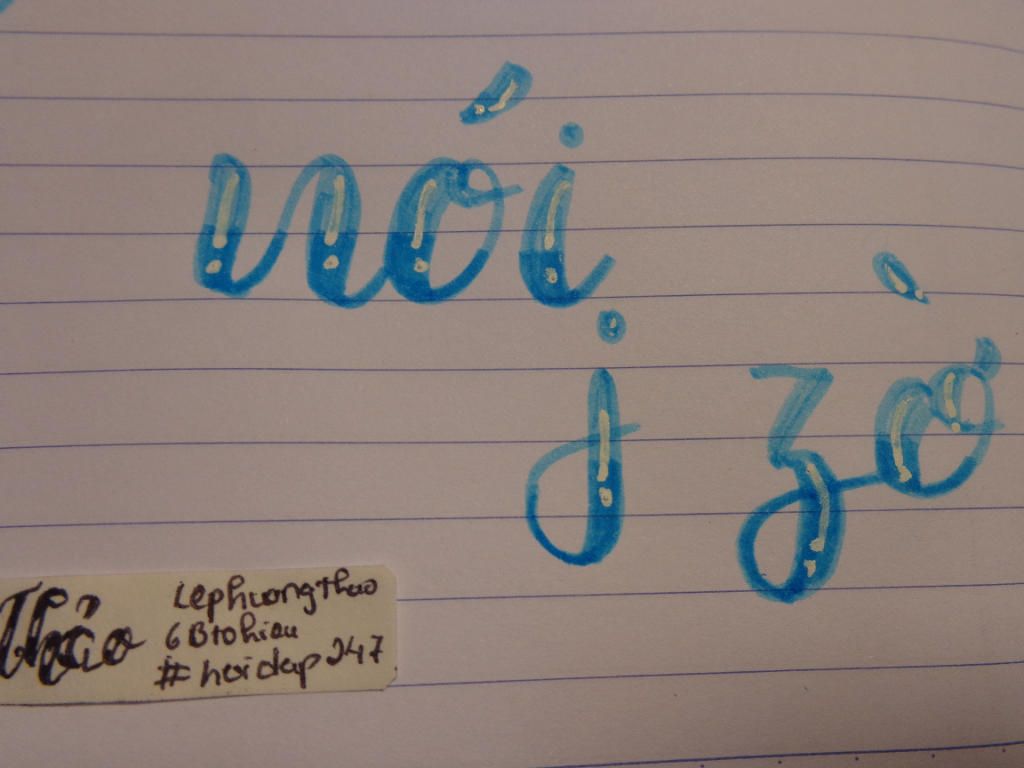 nối
j zờ
Thảo
Lephuongthao
6B tohieu
#hoidap247